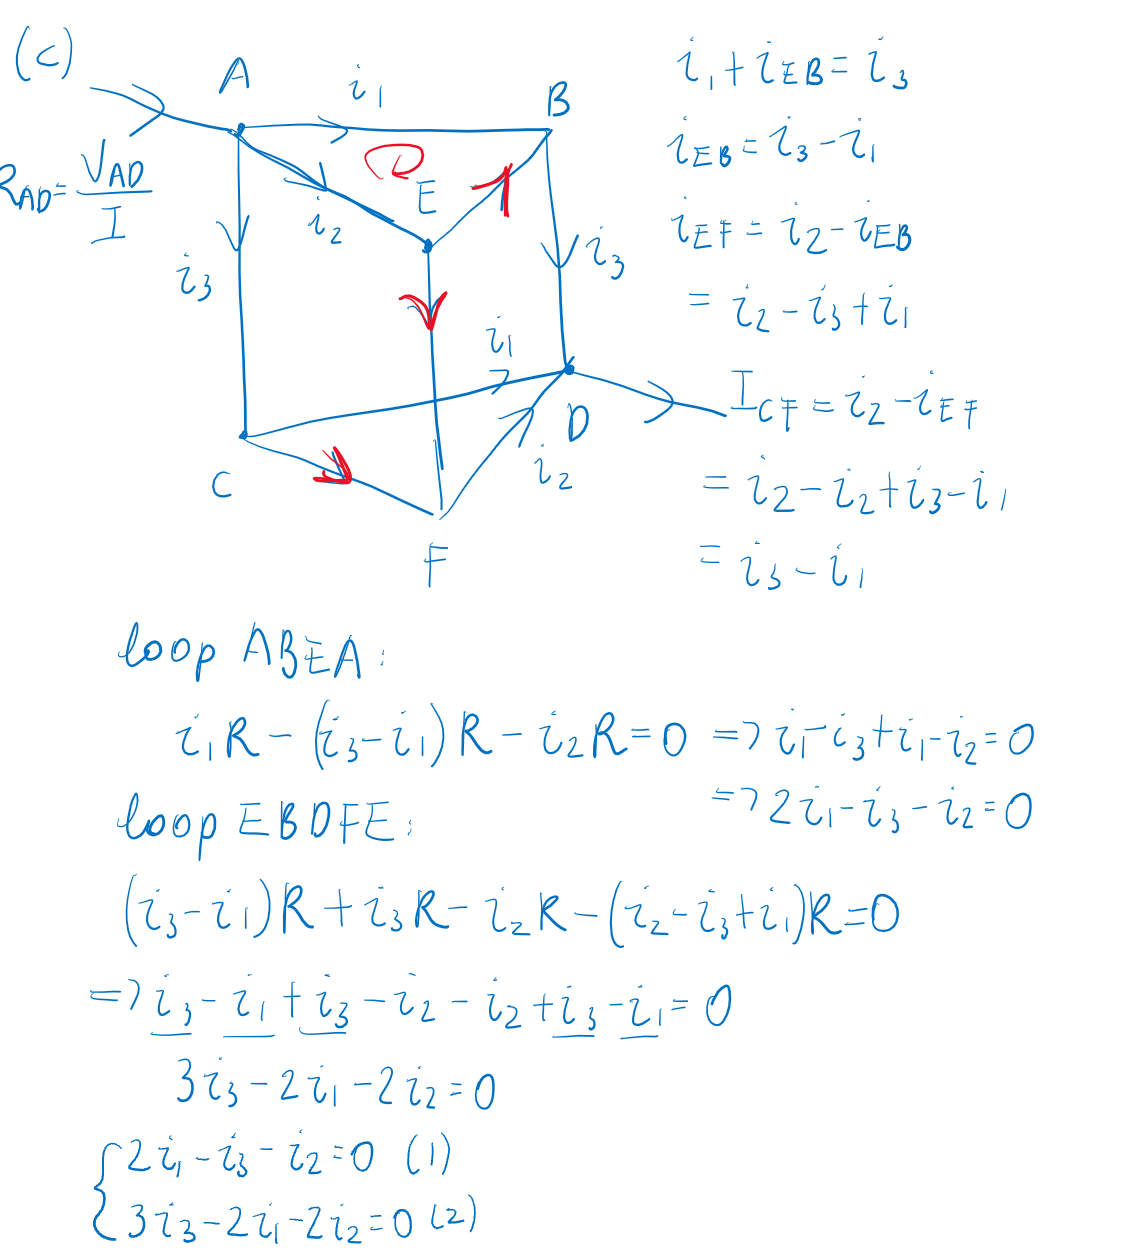 (c)
A
i₁
B
R_AD = V_AD / I
i₂
E
i₃
i₃
i₁
C
D
i₂
F
i₁ + i_EB = i₃
i_EB = i₃ - i₁
i_EF = i₂ - i_EB
= i₂ - i₃ + i₁
I_CF = i₂ - i_EF
= i₂ - i₂ + i₃ - i₁
= i₃ - i₁
loop ABEA:
i₁R - (i₃ - i₁)R - i₂R = 0 => i₁ - i₃ + i₁ - i₂ = 0
=> 2i₁ - i₃ - i₂ = 0
loop EBDFE:
(i₃ - i₁)R + i₃R - i₂R - (i₂ - i₃ + i₁)R = 0
=> i₃ - i₁ + i₃ - i₂ - i₂ + i₃ - i₁ = 0
3i₃ - 2i₁ - 2i₂ = 0
{ 2i₁ - i₃ - i₂ = 0 (1)
3i₃ - 2i₁ - 2i₂ = 0 (2)